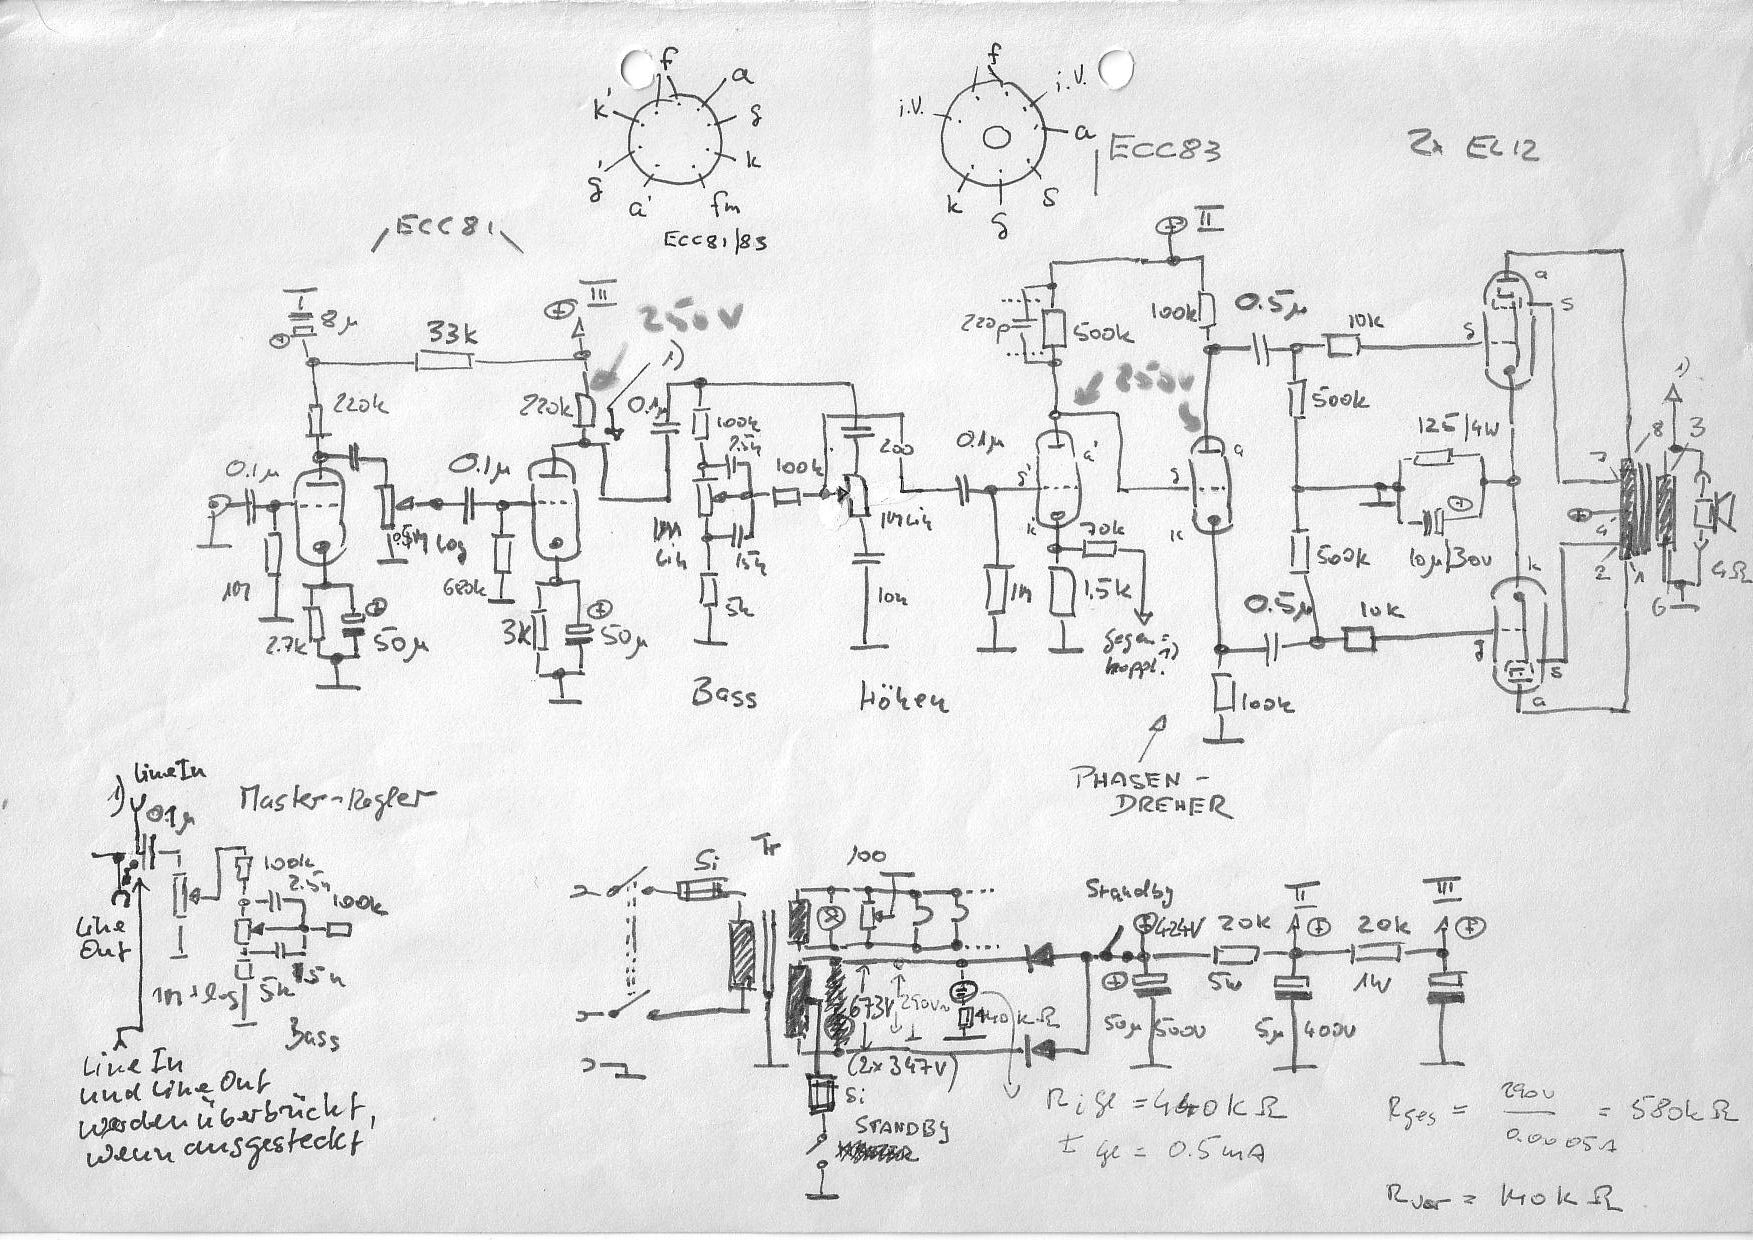 f
k'
a
g
g'
k
a'
fm
ECC81/83
f
i.V.
i.V.
a
k
g
s
ECC83
2x EL12
ECC81
I
8µ
33k
III
250V
1)
220k
220k
0.1µ
0.1µ
0.1µ
1M
2.7k
50µ
0.5M log
680k
3k
50µ
100k
2.5n
1M
lin
15n
5k
100k
200
1M lin
10n
Bass
Höhen
0.1µ
1M
II
220p
500k
100k
250V
g'
a'
k'
70k
1.5k
Gegen=
koppl. 1)
g
a
k
100k
PHASEN-
DREHER
0.5µ
10k
500k
125/4W
10µ/30V
500k
0.5µ
10k
a
s
g
k
g
s
a
1)
8
3
7
4
2
1
6
4Ω
1)
Line In
0.1µ
Master-Regler
100k
2.5n
100k
Line
Out
1M+log
5k
15n
Bass
Line In
und Line Out
werden überbrückt,
wenn ausgesteckt
Si
Tr
100
673V
290V~
(2x347V)
Si
STANDBY
440kΩ
Standby
424V
20k
5W
II
20k
1W
III
50µ
500V
5µ
400V
Ri ge = 440kΩ
I ge = 0.5mA
Rges = 290V / 0.0005A = 580kΩ
Rvor = 140kΩ